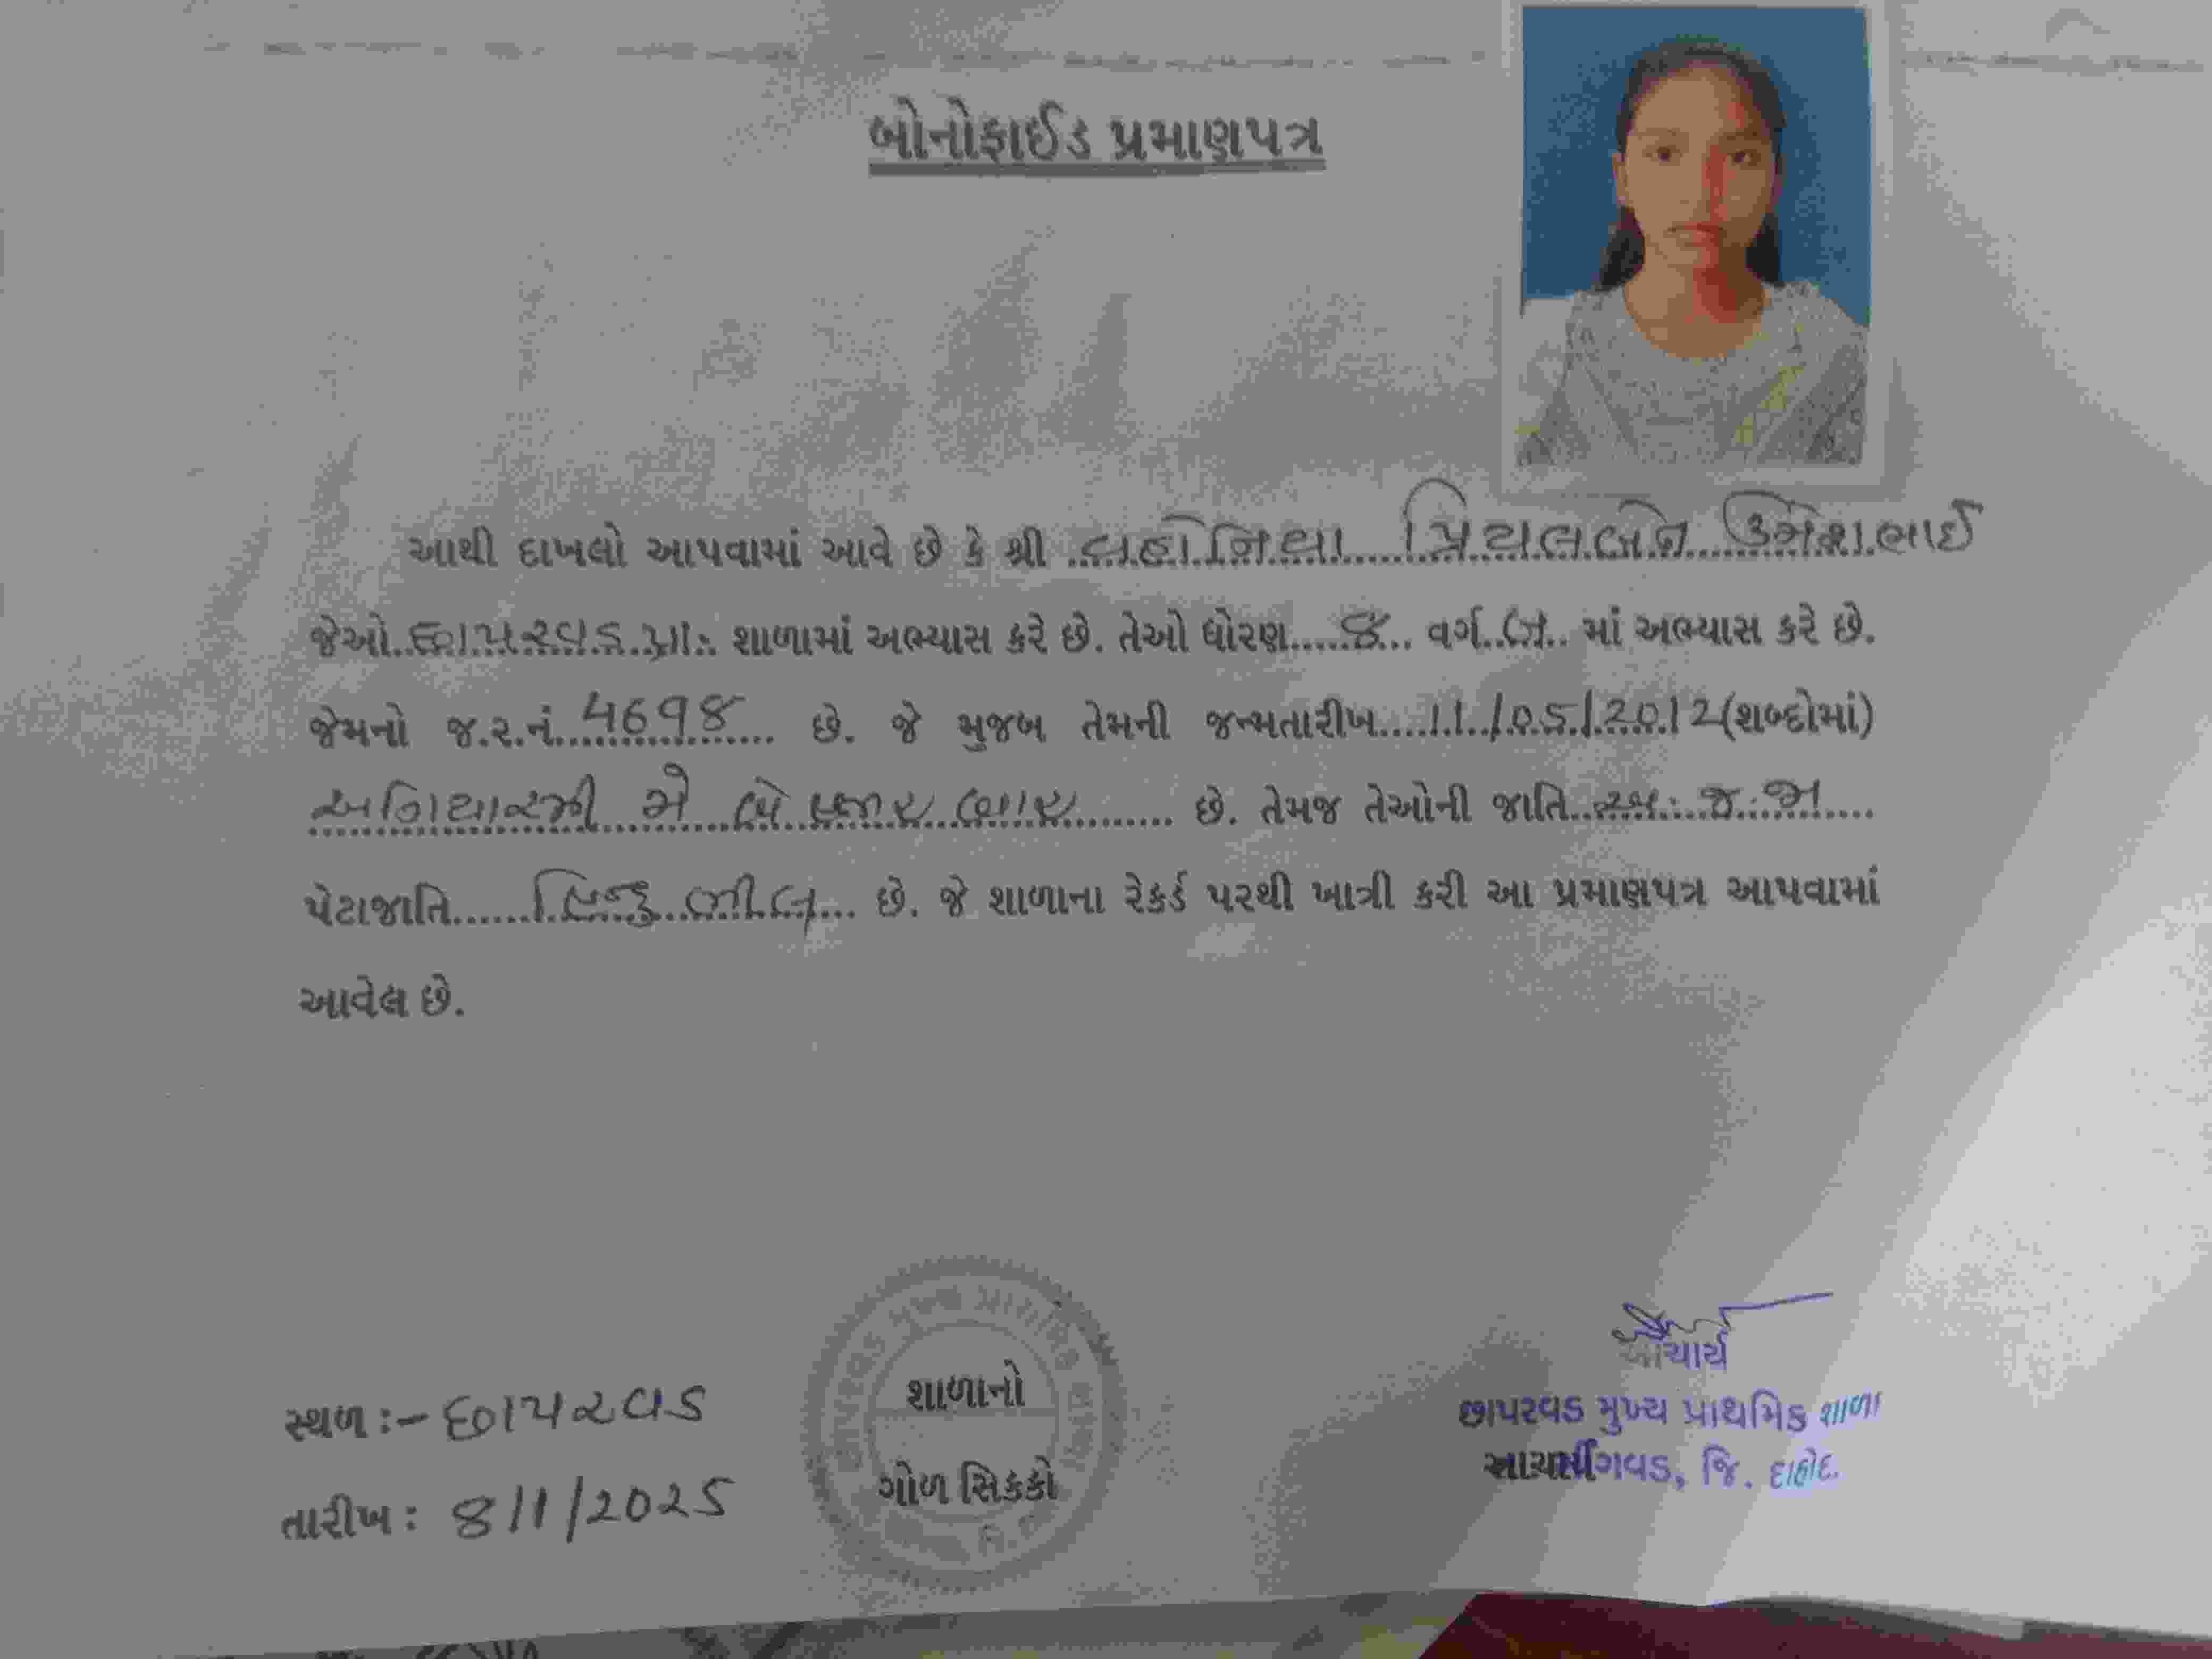 બોનોફાઈડ પ્રમાણપત્ર
આથી દાખલો આપવામાં આવે છે કે શ્રી વહોનિયા પ્રિયલબેન ઉમેશભાઈ
જેઓ છાપરવડ પ્રા. શાળામાં અભ્યાસ કરે છે. તેઓ ધોરણ 8 વર્ગ માં અભ્યાસ કરે છે.
જેમનો જ.ર.નં. 4698 છે. જે મુજબ તેમની જન્મતારીખ 11/05/2012 (શબ્દોમાં)
અગિયારમી મે બે હજાર બાર છે. તેમજ તેઓની જાતિ અ.જ.જા
પેટાજાતિ હિન્દુ ભીલ છે. જે શાળાના રેકર્ડ પરથી ખાત્રી કરી આ પ્રમાણપત્ર આપવામાં
આવેલ છે.
સ્થળ :- છાપરવડ
તારીખ : 8/1/2025
શાળાનો
ગોળ સિકકો
આચાર્ય
છાપરવડ મુખ્ય પ્રાથમિક શાળા
જિ. દાહોદ